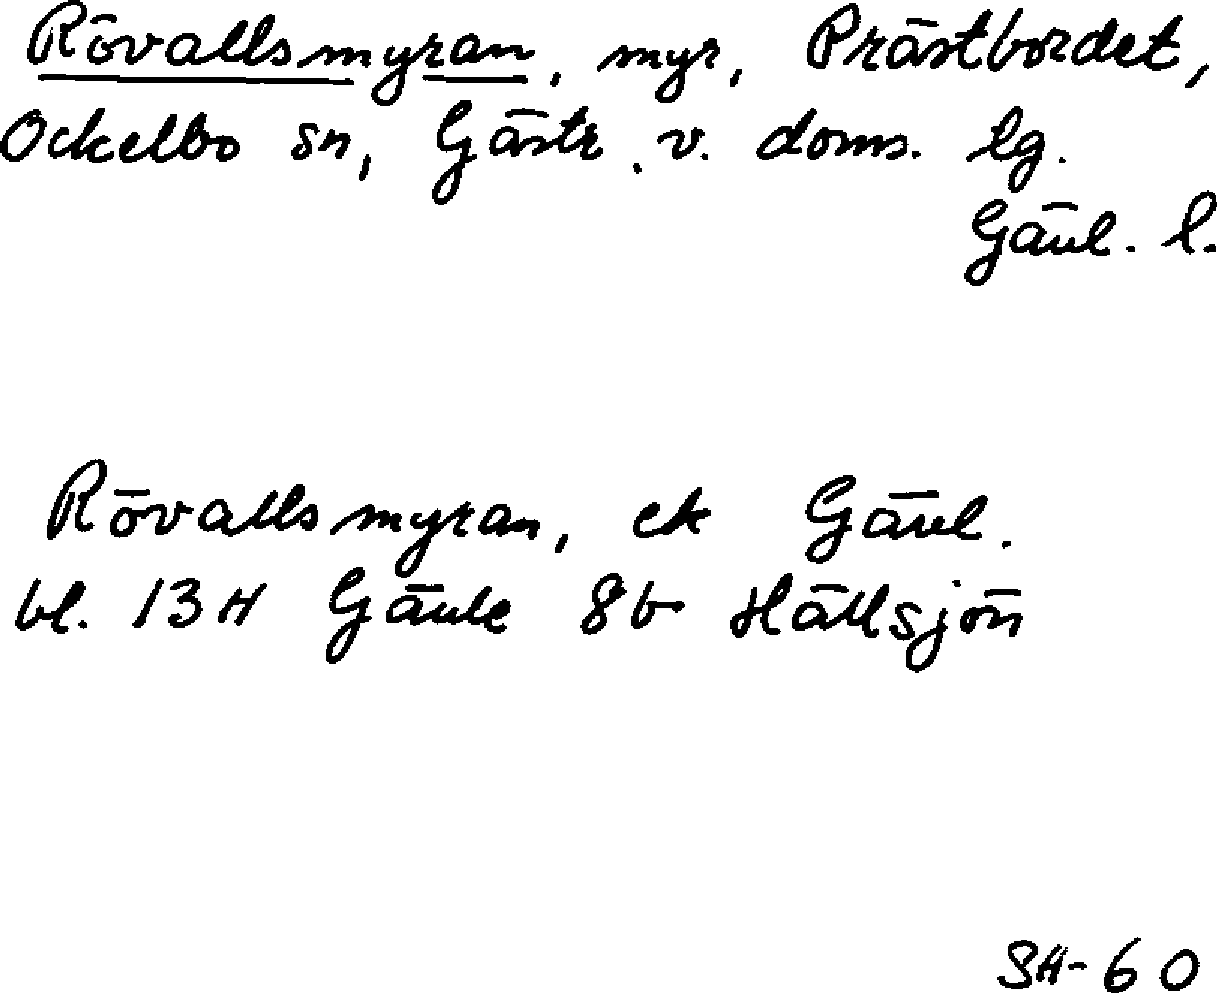 Rövallsmyran, myr, Prästbordet,
Ockelbo sn, Gästr. v. doms. lg.
Gävl. l.
Rövallsmyran, ek Gävl.
bl. 13H Gävle 8b Hällsjön
SH-60